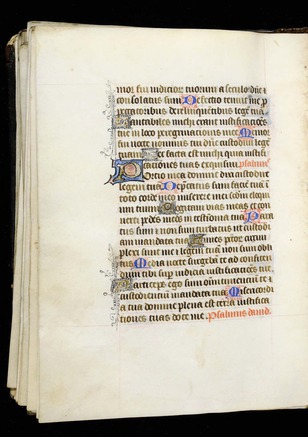 mor fui iudiciorum tuorum a seculo dne et
consolatus sum Defectio tenuit me p
peccatoribus derelinquentibus legē tuā
Cantabiles michi erant iustificacōes
tue in loco peregrinacionis mee Memor
fui nocte nominis tui dne et custodiui legem
tuā Hec facta est michi quia iustifi
caciones tuas exquisiui psalmus
Porcio mea domine dixi custodire
legem tuā Deprecatus sum faciē tuā ī
toto corde meo miserere mei scdm eloqui
um tuū Cogitaui vias meas et con
uerti pedes meos in testimonia tua Para
tus sum et non sum turbatus ut custodi
am mandata tua Funes pctorū circum
plexi sunt me et legem tuā non sum obli
tus Media nocte surgebā ad confiten
dum tibi super iudicia iustificacōis tue
Particeps ego sum omniū timenciū te et
custodienciū mandata tua Misericordia
tua domine plena est terra iustifica
ciones tuas doce me Psalmus dauid